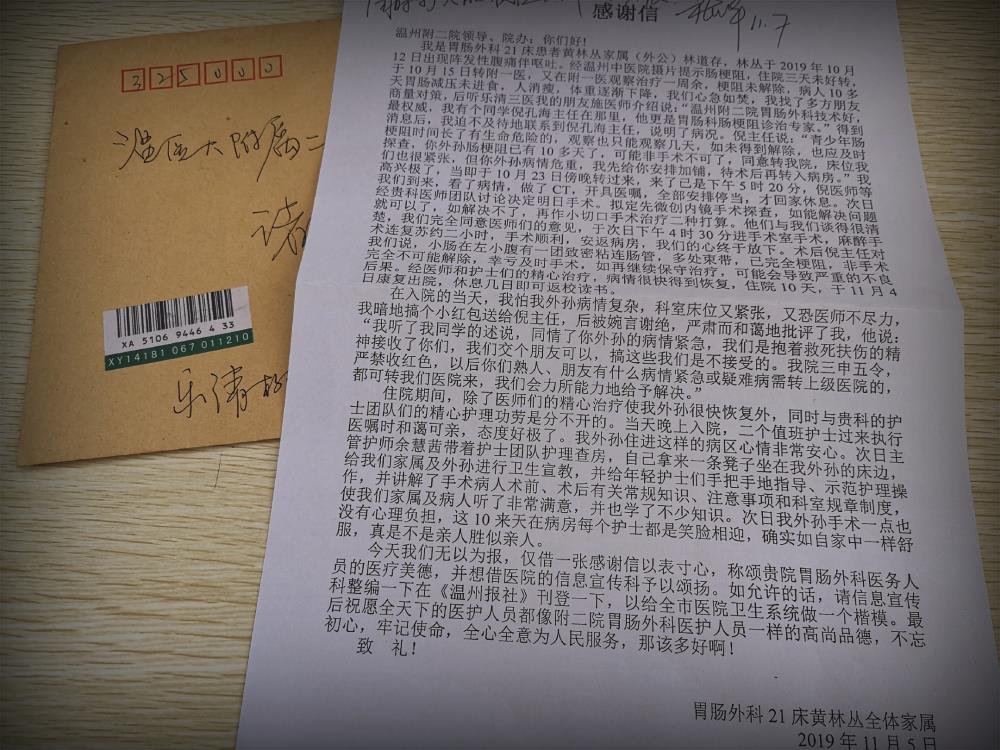 325000
温医大附属二
XA 5106 9446 4 33
XY14181 067 011210
乐清
11.7
感谢信
温州附二院领导、院办：你们好！
我是胃肠外科21床患者黄林丛家属（外公）林道存，林丛于2019年10月
12日出现阵发性腹痛伴呕吐。经温州中医院摄片提示肠梗阻，住院三天未好转，
于10月15日转附一医，又在附一医观察治疗一周余，梗阻未解除，病人10多
天胃肠减压未进食，人消瘦，体重逐渐下降，我们心急如焚，我找了多方朋友
商量对策，后听乐清三医我的朋友施医师介绍说：“温州附二院胃肠外科技术好，
最权威，我有个同学倪孔海主任在那里，他更是胃肠科肠梗阻诊治专家。”得到
消息后，我迫不及待地联系到倪孔海主任，说明了病况。倪主任说：“青少年肠
梗阻时间长了有生命危险的，观察也只能观察几天，如未得到解除，也应及时
探查，你外孙肠梗阻已有10多天了，可能非手术不可了，同意转我院，床位我
们也很紧张，但你外孙病情危重，我先给你安排加铺，待术后再转入病房。”我
高兴极了，当即于10月23日傍晚转过来，来了已是下午5时20分，倪医师等
我们到来，看了病情，做了CT，开具医嘱，全部安排停当，才回家休息。次日
经贵科医师团队讨论决定明日手术。拟定先微创内镜手术探查，如能解决问题
就可以了，如解决不了，再作小切口手术治疗二种打算。他们与我们谈得很清
楚，我们完全同意医师们的意见，于次日下午4时30分进手术室手术，麻醉手
术连复苏约二小时，手术顺利，安返病房，我们的心终于放下。术后倪主任对
我们说，小肠在左小腹有一团致密粘连肠管，多处束带，已完全梗阻，非手术
完全不可能解除，幸亏及时手术，如再继续保守治疗，可能会导致严重的不良
后果。经医师和护士们的精心治疗，病情很快得到恢复，住院10天，于11月4
日康复出院，休息几日即可返校读书。
在入院的当天，我怕我外孙病情复杂，科室床位又紧张，又恐医师不尽力，
我暗地搞个小红包送给倪主任，后被婉言谢绝，严肃而和蔼地批评了我，他说：
“我听了我同学的述说，同情了你外孙的病情紧急，我们是抱着救死扶伤的精
神接收了你们，我们交个朋友可以，搞这些我们是不接受的。我院三申五令，
严禁收红色，以后你们熟人、朋友有什么病情紧急或疑难病需转上级医院的，
都可转我们医院来，我们会力所能力地给予解决。”
住院期间，除了医师们的精心治疗使我外孙很快恢复外，同时与贵科的护
士团队们的精心护理功劳是分不开的。当天晚上入院，二个值班护士过来执行
医嘱时和蔼可亲，态度好极了。我外孙住进这样的病区心情非常安心。次日主
管护师余慧茜带着护士团队护理查房，自己拿来一条凳子坐在我外孙的床边，
给我们家属及外孙进行卫生宣教，并给年轻护士们手把手地指导、示范护理操
作，并讲解了手术病人术前、术后有关常规知识、注意事项和科室规章制度，
使我们家属及病人听了非常满意，并也学了不少知识。次日我外孙手术一点也
没有心理负担，这10来天在病房每个护士都是笑脸相迎，确实如自家中一样舒
服，真是不是亲人胜似亲人。
今天我们无以为报，仅借一张感谢信以表寸心，称颂贵院胃肠外科医务人
员的医疗美德，并想借医院的信息宣传科予以颂扬。如允许的话，请信息宣传
科整编一下在《温州报社》刊登一下，以给全市医院卫生系统做一个楷模。最
后祝愿全天下的医护人员都像附二院胃肠外科医护人员一样的高尚品德，不忘
初心，牢记使命，全心全意为人民服务，那该多好啊！
致 礼！
胃肠外科21床黄林丛全体家属
2019年11月5日